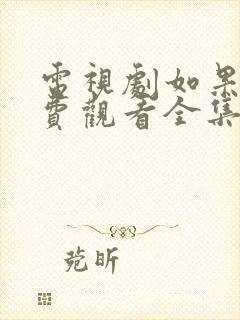 電視劇如果
費觀看全集
菀昕